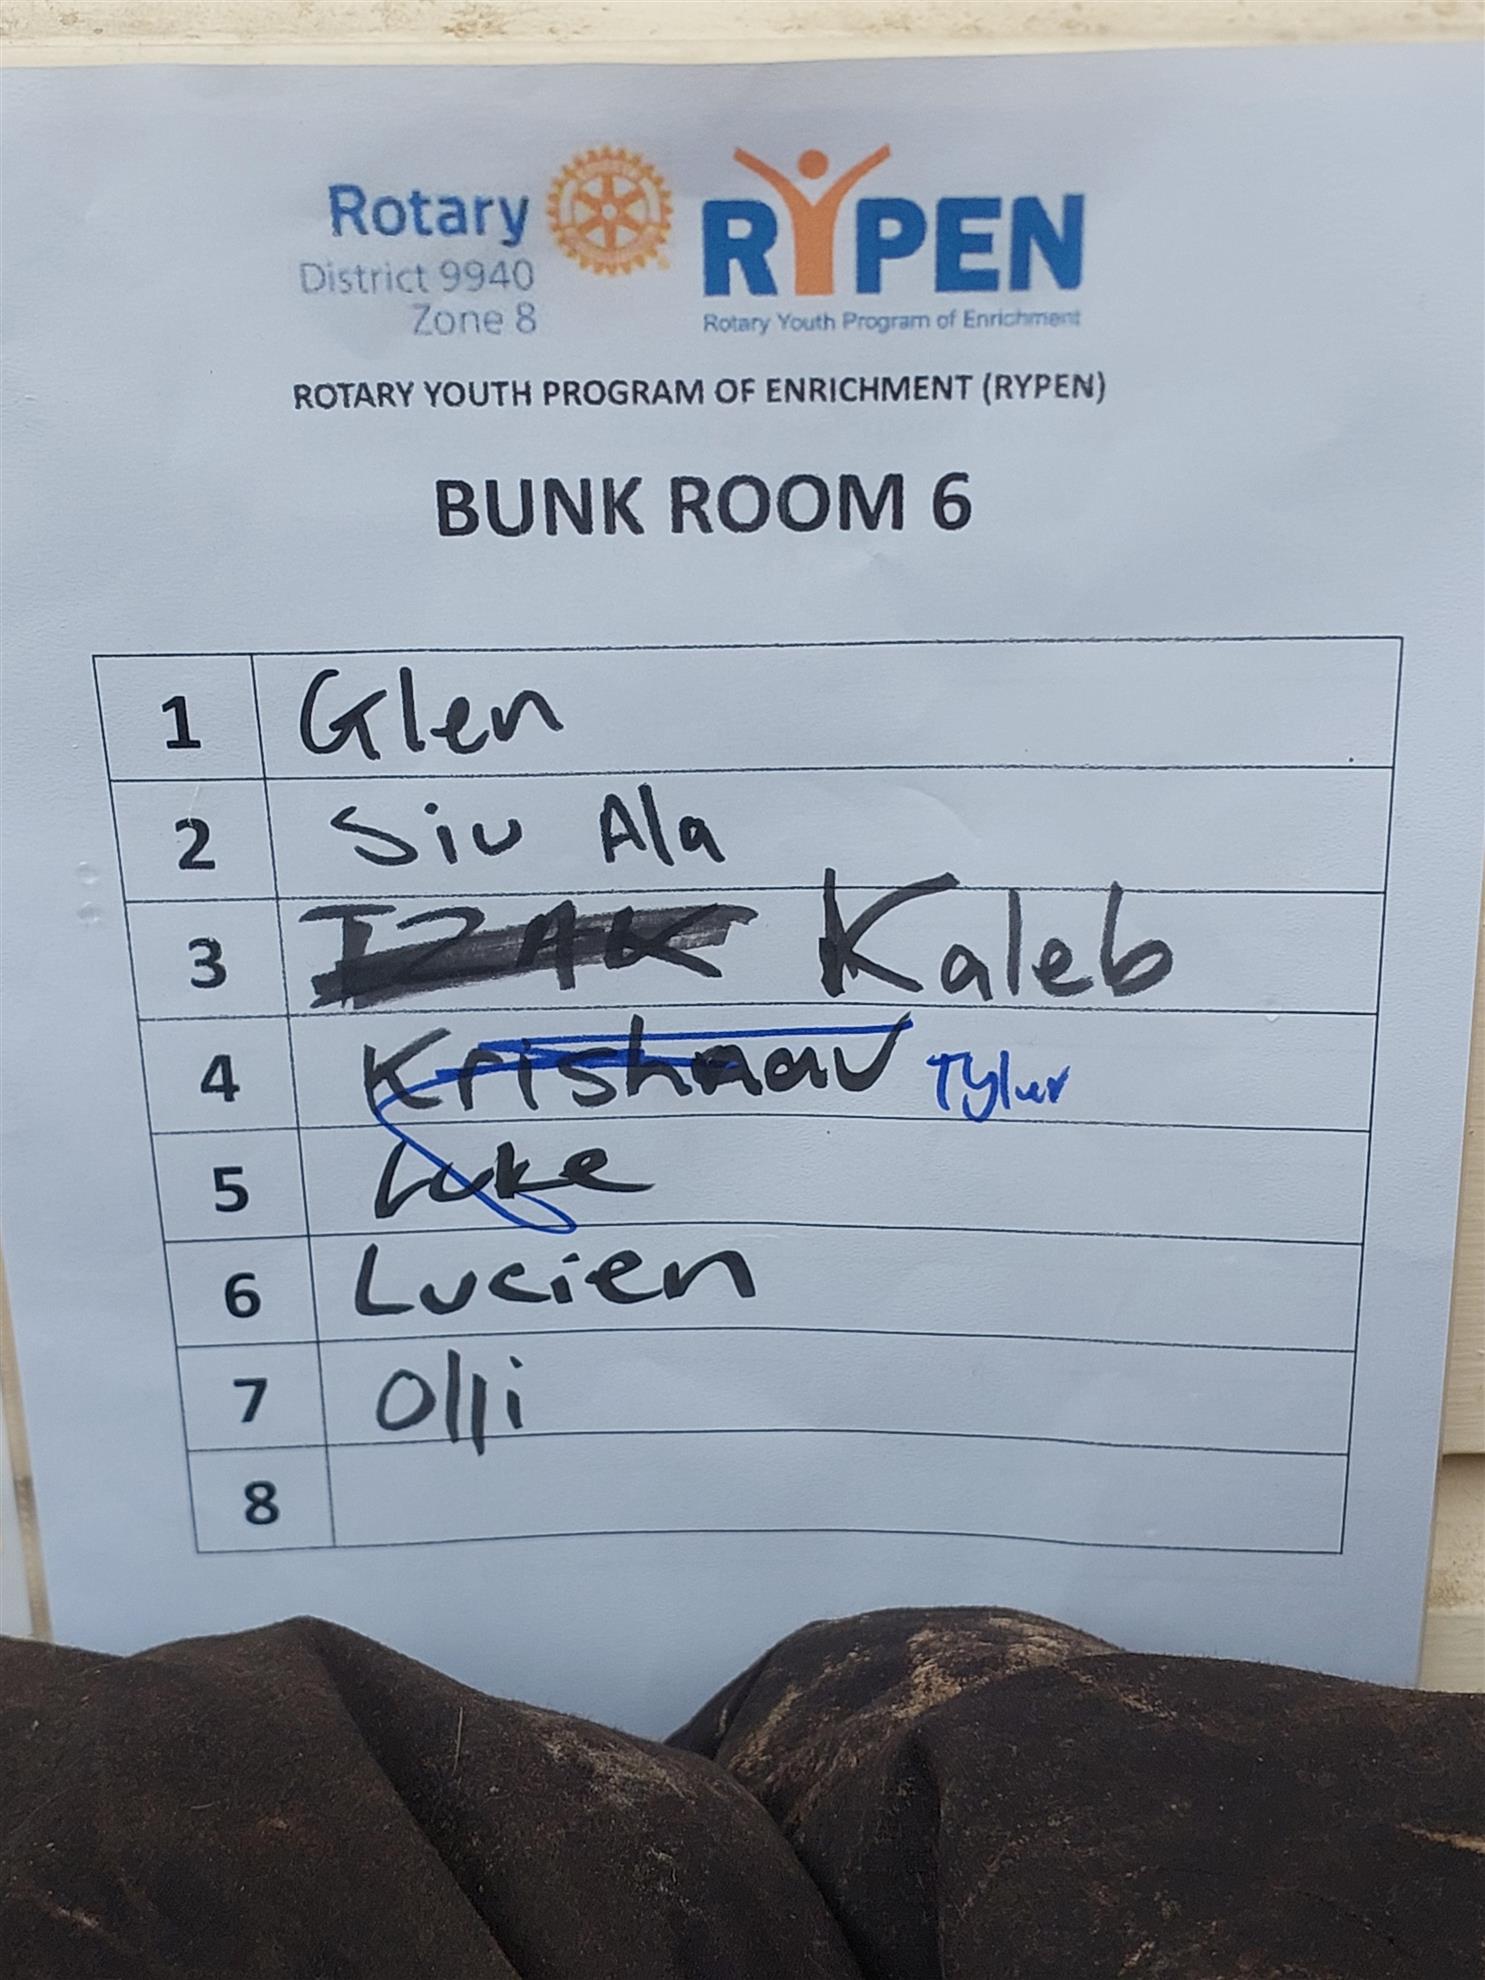 Rotary
District 9940
Zone 8
RYPEN
Rotary Youth Program of Enrichment
ROTARY YOUTH PROGRAM OF ENRICHMENT (RYPEN)
BUNK ROOM 6
1 Glen
2 Siu Ala
3 IZAK Kaleb
4 Krishnav Tyler
5 Luke
6 Lucien
7 Olli
8